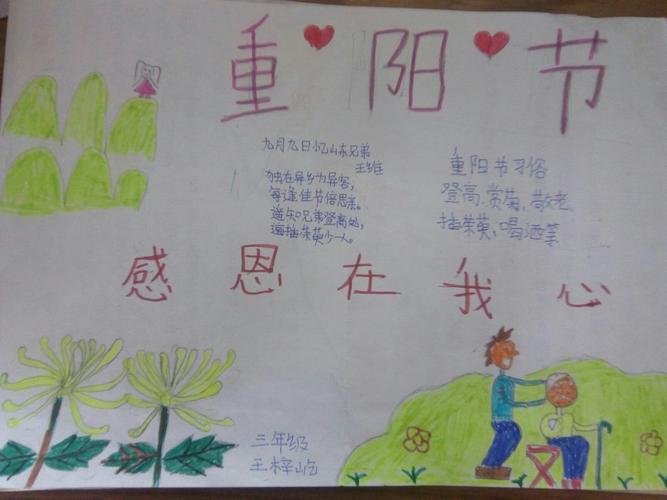 重阳节
九月九日忆山东兄弟
王维
独在异乡为异客，
每逢佳节倍思亲。
遥知兄弟登高处，
遍插茱萸少一人。
重阳节习俗
登高、赏菊、敬老、
插茱萸、喝酒等
感恩在我心
三年级
王梓屹